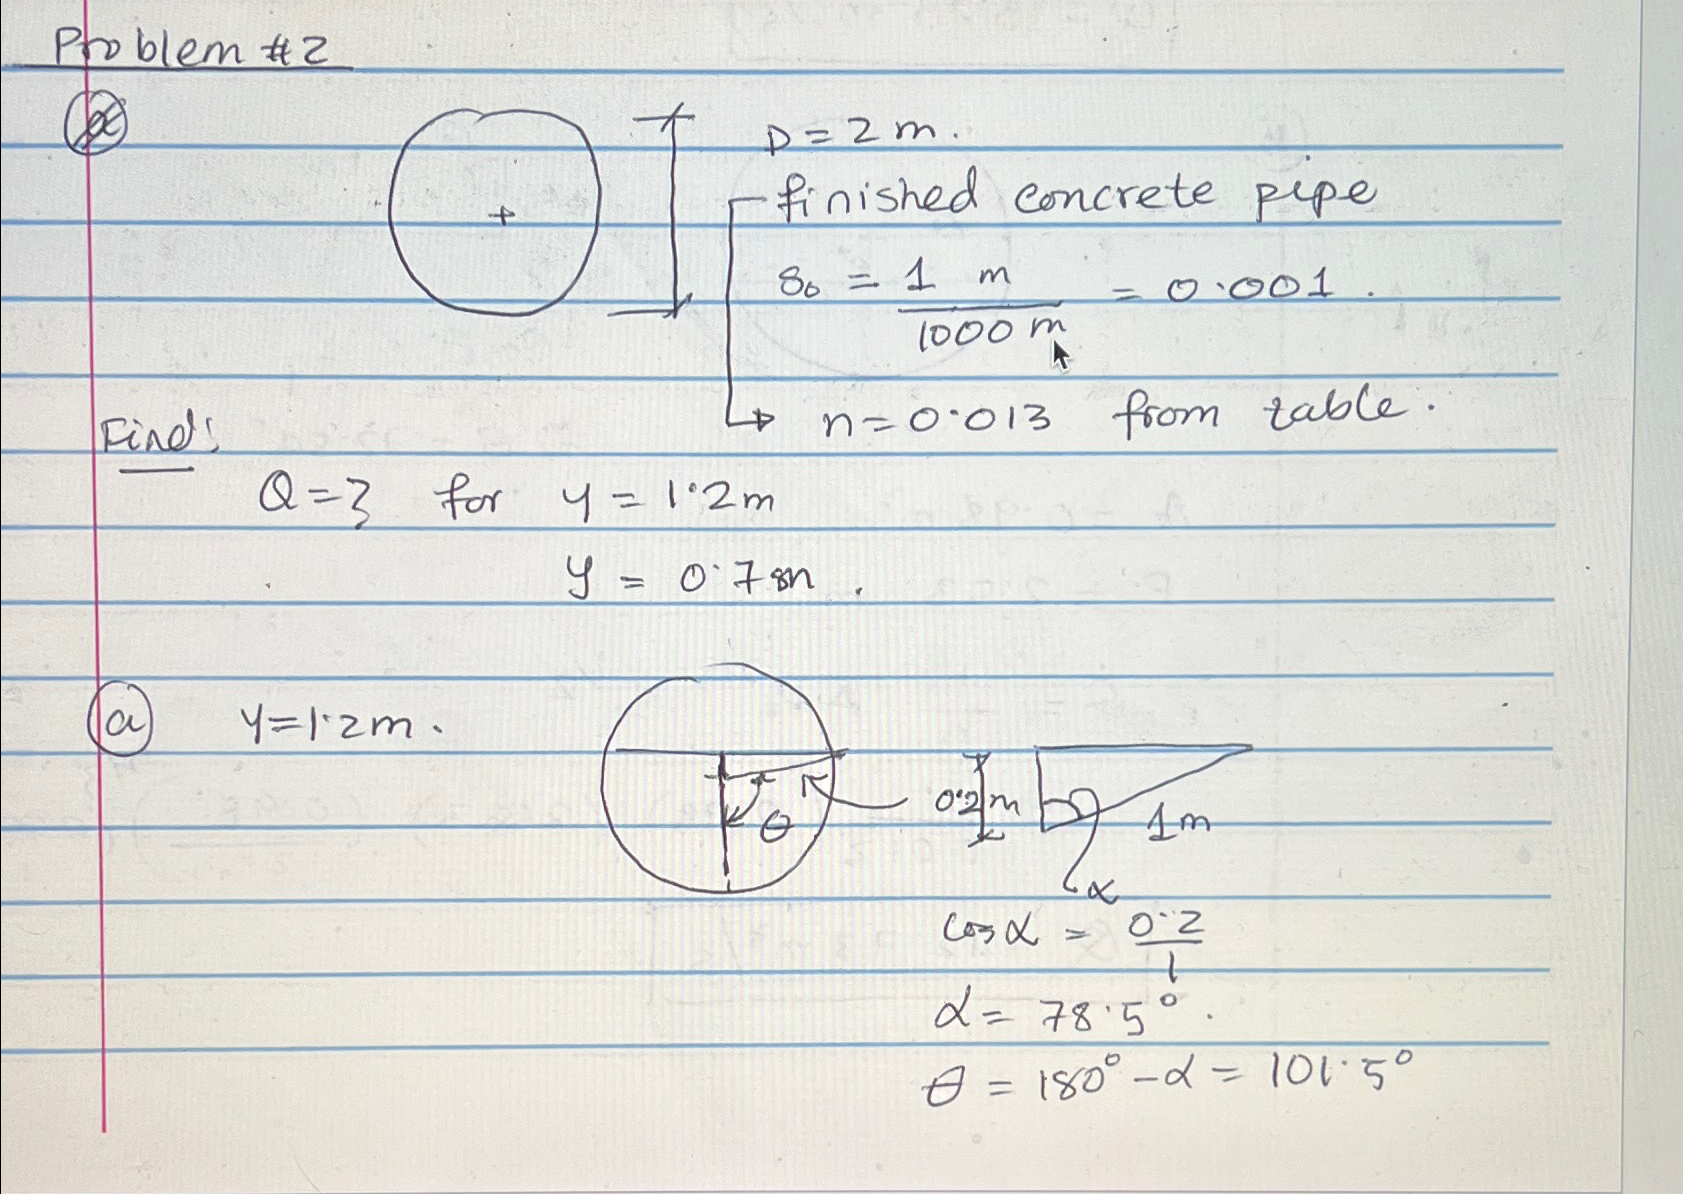 Problem #2
D = 2 m.
finished concrete pipe
S₀ = 1 m / 1000 m = 0.001.
n = 0.013 from table.
Find:
Q = ? for y = 1.2m
y = 0.78m.
(a) y = 1.2m.
θ
0.2m
1m
α
cos α = 0.2 / 1
α = 78.5°.
θ = 180° - α = 101.5°